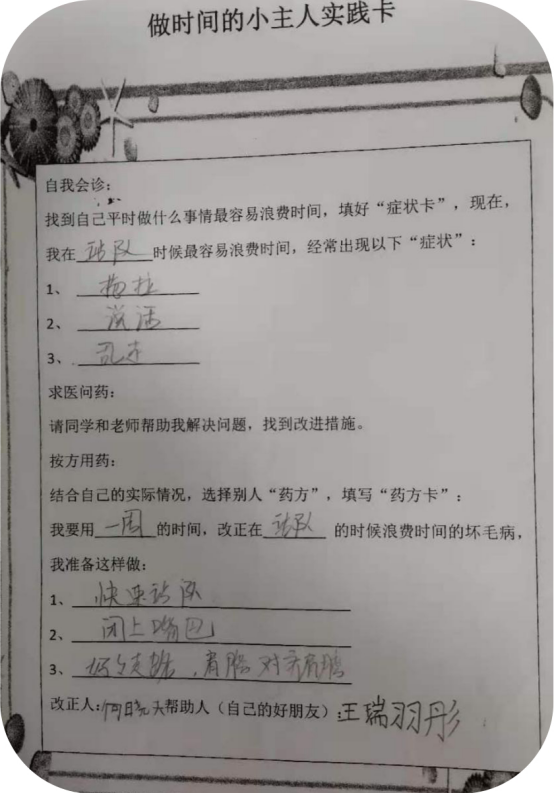 做时间的小主人实践卡
自我会诊：
找到自己平时做什么事情最容易浪费时间，填好“症状卡”，现在，
我在 站队 时候最容易浪费时间，经常出现以下“症状”：
1、 拖拉
2、 说话
3、 乱走
求医问药：
请同学和老师帮助我解决问题，找到改进措施。
按方用药：
结合自己的实际情况，选择别人“药方”，填写“药方卡”：
我要用 一周 的时间，改正在 站队 的时候浪费时间的坏毛病，
我准备这样做：
1、 快速站队
2、 闭上嘴巴
3、 ，肩膀对齐肩膀
改正人： 帮助人（自己的好朋友）：王瑞羽彤